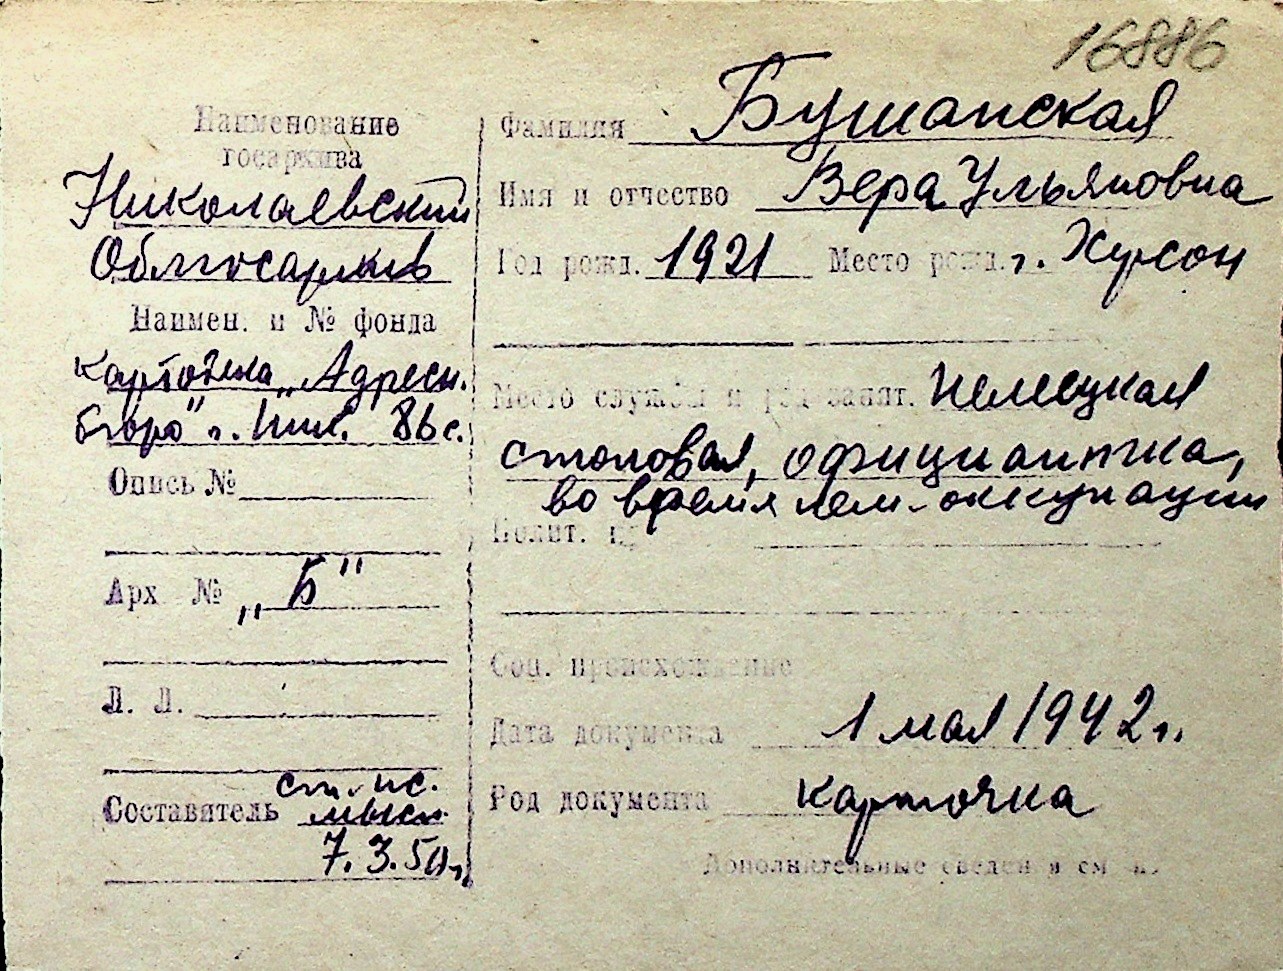 16886
Наименование
госархива
Николаевский
Облгосархив
Наимен. и № фонда
картотека „Адресн.
бюро" г. Ник. 86 с.
Опись №
Арх №
„Б"
Л. Л.
Составитель
7.3.50г.
Фамилия Бушанская
Имя и отчество Вера Ульяновна
Год рожд. 1921 Место рожд. г. Херсон
Место службы и род занят. Немецкая
столовая, официантка,
во время нем. оккупации
Полит.
Соц. происхождение
Дата документа 1 мая 1942 г.
Род документа карточка
Дополнительные сведения см